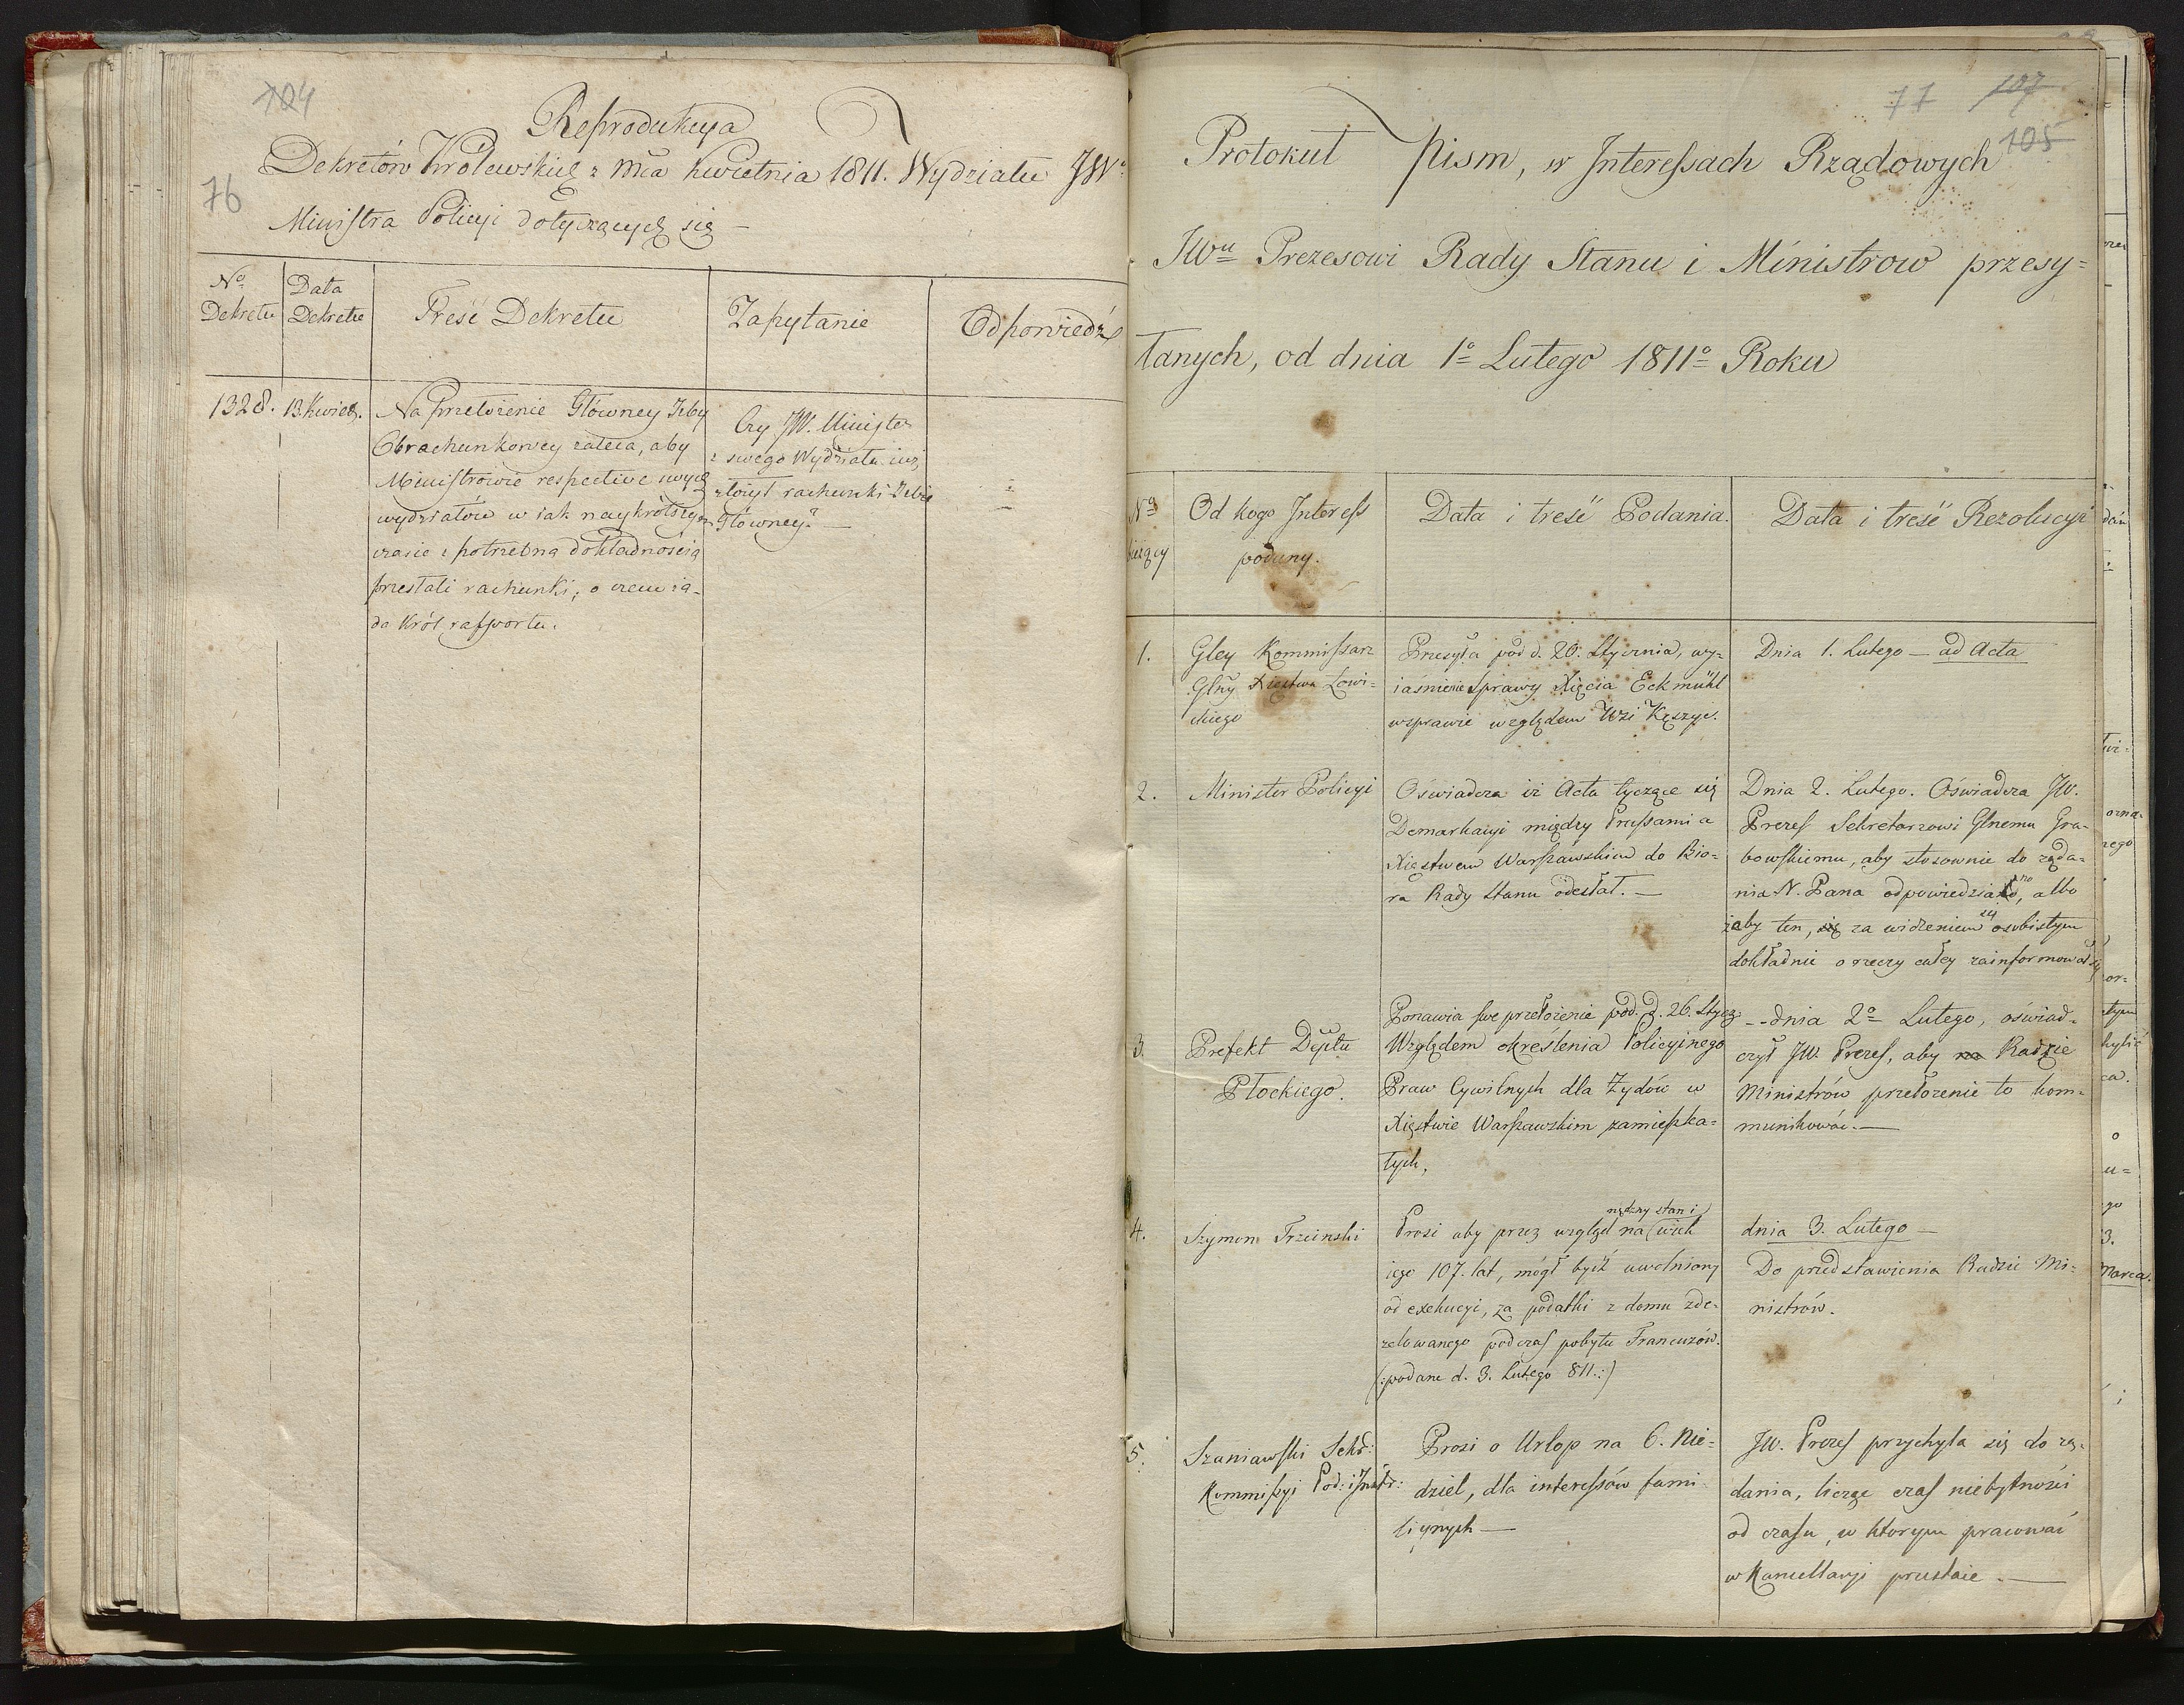 104
76
Reprodukcya
Dekretów Królewskich z mca Kwietnia 1811. Wydziału JW.
Ministra Policyi dotyczących się —
No Dekretu
Data Dekretu
Treść Dekretu
Zapytanie
Odpowiedź
1328.
13. Kwiet.
Na Przełożenie Głowney Izby
Obrachunkowey zaleca, aby
Ministrowie respective swych
wydziałów w iak naykrótszym
czasie z potrzebną dokładnością
przesłali rachunki, o czem żą-
da Król rapportu.
Czy JW. Minister
z swego Wydziału iuż
złożył rachunki Izbie
Główney? —
77 107
105
Protokuł pism, w Interessach Rządowych
JWu Prezesowi Rady Stanu i Ministrow przesy=
łanych, od dnia 1o Lutego 1811o Roku
No bieżący
Od kogo Interess
podany.
Data i treść Podania.
Data i treść Rezolucyi
1.
Gley Kommissarz
Glny Xięstwa Łowi=
ckiego
Przesyła pod d. 20. Stycznia, wy=
iaśnienie Sprawy Xięcia Eckmühl
wsprawie względem Wsi Kęszyc.
Dnia 1. Lutego — ad Acta
2.
Minister Policyi
Oświadcza iż Acta tyczące się
Demarkacyi między Prussami a
Xięstwem Warszawskim do Bio=
ra Rady Stanu odesłał. —
Dnia 2. Lutego. Oświadcza JW.
Prezes Sekretarzowi Glnemu Gra=
bowskiemu, aby stosownie do żąda=
nia N. Pana odpowiedziano, albo
żeby ten, się za widzeniem się osobistym
dokładnie o rzeczy całey zainformował się
3.
Prefekt Deptu
Płockiego.
Ponawia swe przełożenie pod. d. 26. Stycz
Względem określenia Policyinego
Praw Cywilnych dla Żydów w
Xięstwie Warszawskim zamieszka=
łych.
--dnia 2o Lutego, oświad=
czył JW. Prezes, aby na Radzie
Ministrów przełożenie to kom=
munikować. —
4.
Szymon Trzcinski
nędzny stan i
Prosi aby przez wzgląd na wiek
iego 107. lat, mógł bydź uwolniony
od exekucyi, za podatki z domu zde=
zelowanego podczas pobytu Francuzów.
(:podane d. 3. Lutego 811.:)
dnia 3. Lutego —
Do przedstawienia Radzie Mi=
nistrów.
5.
Szaniawski Sekr:
Kommissyi Pod: i Instr:
Prosi o Urlop na 6. Nie=
dziel, dla interessów fami
liynych —
JW. Prezes przychyla się do żą=
dania, licząc czas niebytności
od czasu, w ktorym pracować
w Kancellaryi przestaie. —